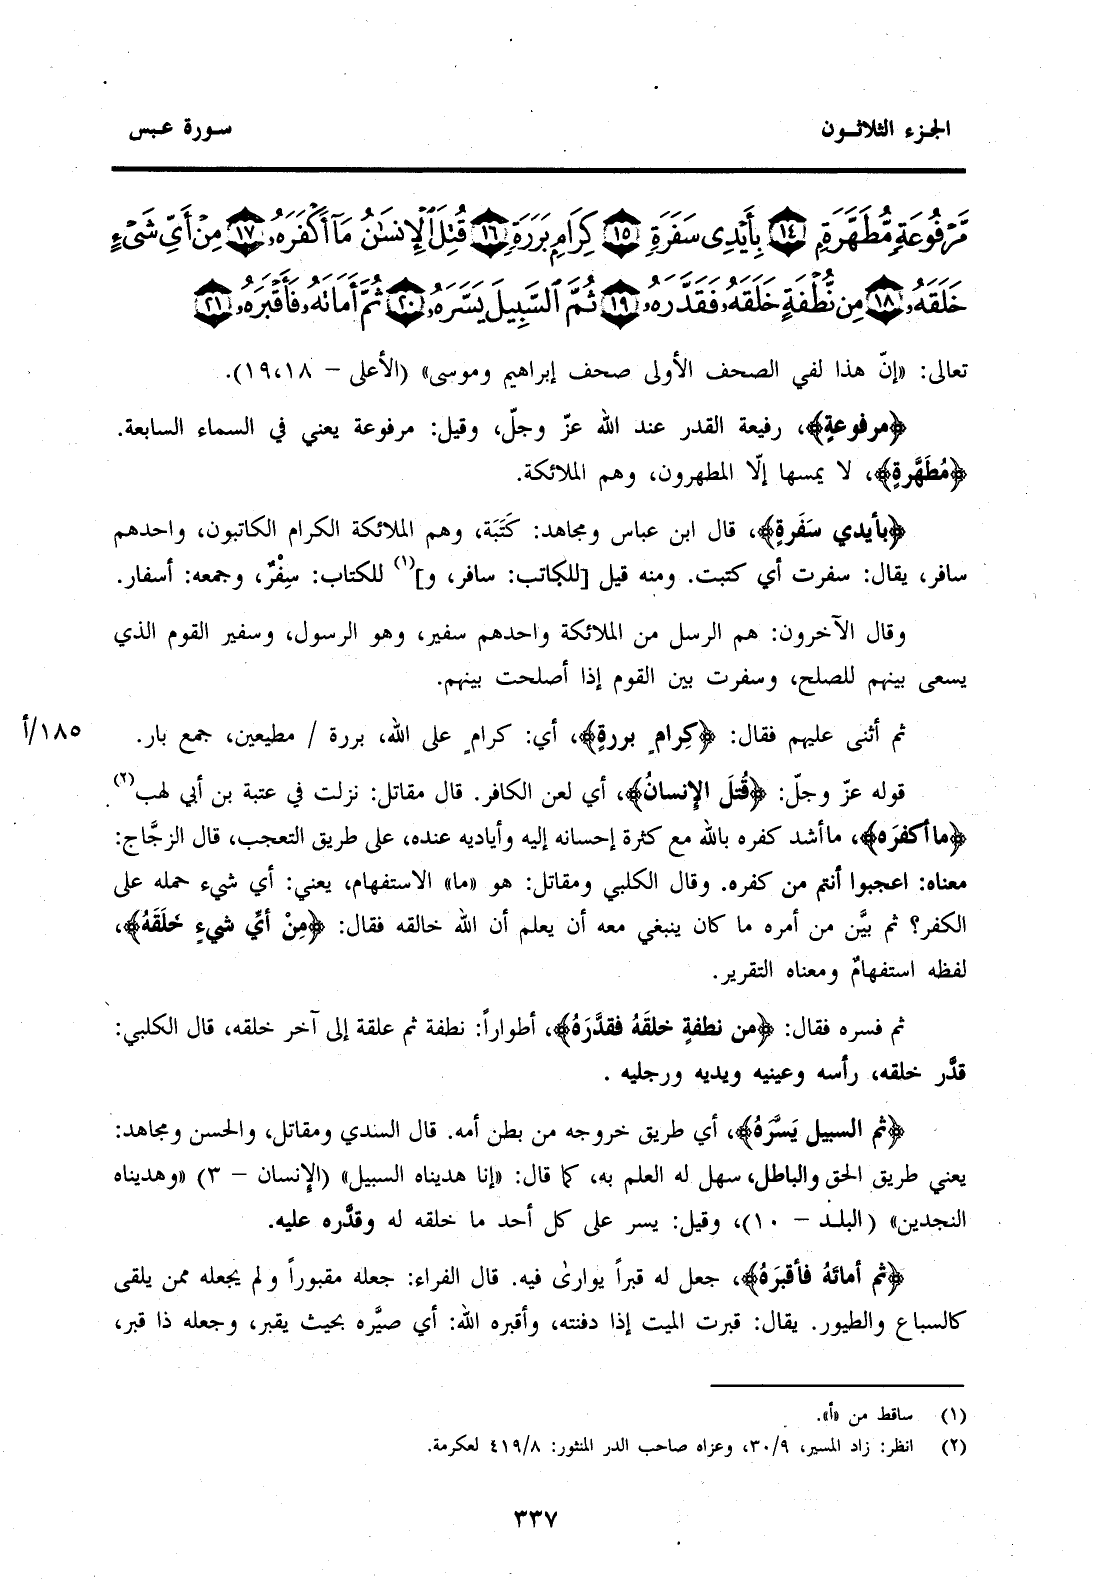 الجزء الثلاثون
سورة عبس
مَّرْفُوعَةٍ مُّطَهَّرَةٍ ١٤ بِأَيْدِى سَفَرَةٍ ١٥ كِرَامٍ بَرَرَةٍ ١٦ قُتِلَ ٱلْإِنسَٰنُ مَآ أَكْفَرَهُۥ ١٧ مِنْ أَىِّ شَىْءٍ
خَلَقَهُۥ ١٨ مِن نُّطْفَةٍ خَلَقَهُۥ فَقَدَّرَهُۥ ١٩ ثُمَّ ٱلسَّبِيلَ يَسَّرَهُۥ ٢٠ ثُمَّ أَمَاتَهُۥ فَأَقْبَرَهُۥ ٢١
تعالى: «إنّ هذا لفي الصحف الأولى صحف إبراهيم وموسى» (الأعلى – ١٨،١٩).
﴿مرفوعةٍ﴾، رفيعة القدر عند الله عزّ وجلّ، وقيل: مرفوعة يعني في السماء السابعة.
﴿مُطَهَّرةٍ﴾، لا يمسها إلّا المطهرون، وهم الملائكة.
﴿بأيدي سَفَرةٍ﴾، قال ابن عباس ومجاهد: كَتَبَة، وهم الملائكة الكرام الكاتبون، واحدهم
سافر، يقال: سفرت أي كتبت. ومنه قيل [للكاتب: سافر، و](١) للكتاب: سِفْرٌ، وجمعه: أسفار.
وقال الآخرون: هم الرسل من الملائكة واحدهم سفير، وهو الرسول، وسفير القوم الذي
يسعى بينهم للصلح، وسفرت بين القوم إذا أصلحت بينهم.
ثم أثنى عليهم فقال: ﴿كِرامٍ بررةٍ﴾، أي: كرامٍ على الله، بررة / مطيعين، جمع بار.
١٨٥/أ
قوله عزّ وجلّ: ﴿قُتلَ الإنسانُ﴾، أي لعن الكافر. قال مقاتل: نزلت في عتبة بن أبي لهب(٢).
﴿ماأكفرَه﴾، ماأشد كفره بالله مع كثرة إحسانه إليه وأياديه عنده، على طريق التعجب، قال الزجَّاج:
معناه: اعجبوا أنتم من كفره. وقال الكلبي ومقاتل: هو «ما» الاستفهام، يعني: أي شيء حمله على
الكفر؟ ثم بيَّن من أمره ما كان ينبغي معه أن يعلم أن الله خالقه فقال: ﴿مِنْ أيِّ شيءٍ خَلَقَهُ﴾،
لفظه استفهامٌ ومعناه التقرير.
ثم فسره فقال: ﴿من نطفةٍ خلقَهُ فقدَّرَهُ﴾، أطواراً: نطفة ثم علقة إلى آخر خلقه، قال الكلبي:
قدَّر خلقه، رأسه وعينيه ويديه ورجليه .
﴿ثم السبيل يَسَّرَهُ﴾، أي طريق خروجه من بطن أمه. قال السدي ومقاتل، والحسن ومجاهد:
يعني طريق الحق والباطل، سهل له العلم به، كما قال: «إنا هديناه السبيل» (الإنسان – ٣) «وهديناه
النجدين» (البلد – ١٠)، وقيل: يسر على كل أحد ما خلقه له وقدَّره عليه.
﴿ثم أماتَهُ فأقبَرَهُ﴾، جعل له قبراً يوارىٰ فيه. قال الفراء: جعله مقبوراً ولم يجعله ممن يلقى
كالسباع والطيور. يقال: قبرت الميت إذا دفنته، وأقبره الله: أي صيَّره بحيث يقبر، وجعله ذا قبر،
(١) ساقط من «أ».
(٢) انظر: زاد المسير، ٣٠/٩، وعزاه صاحب الدر المنثور: ٤١٩/٨ لعكرمة.
٣٣٧